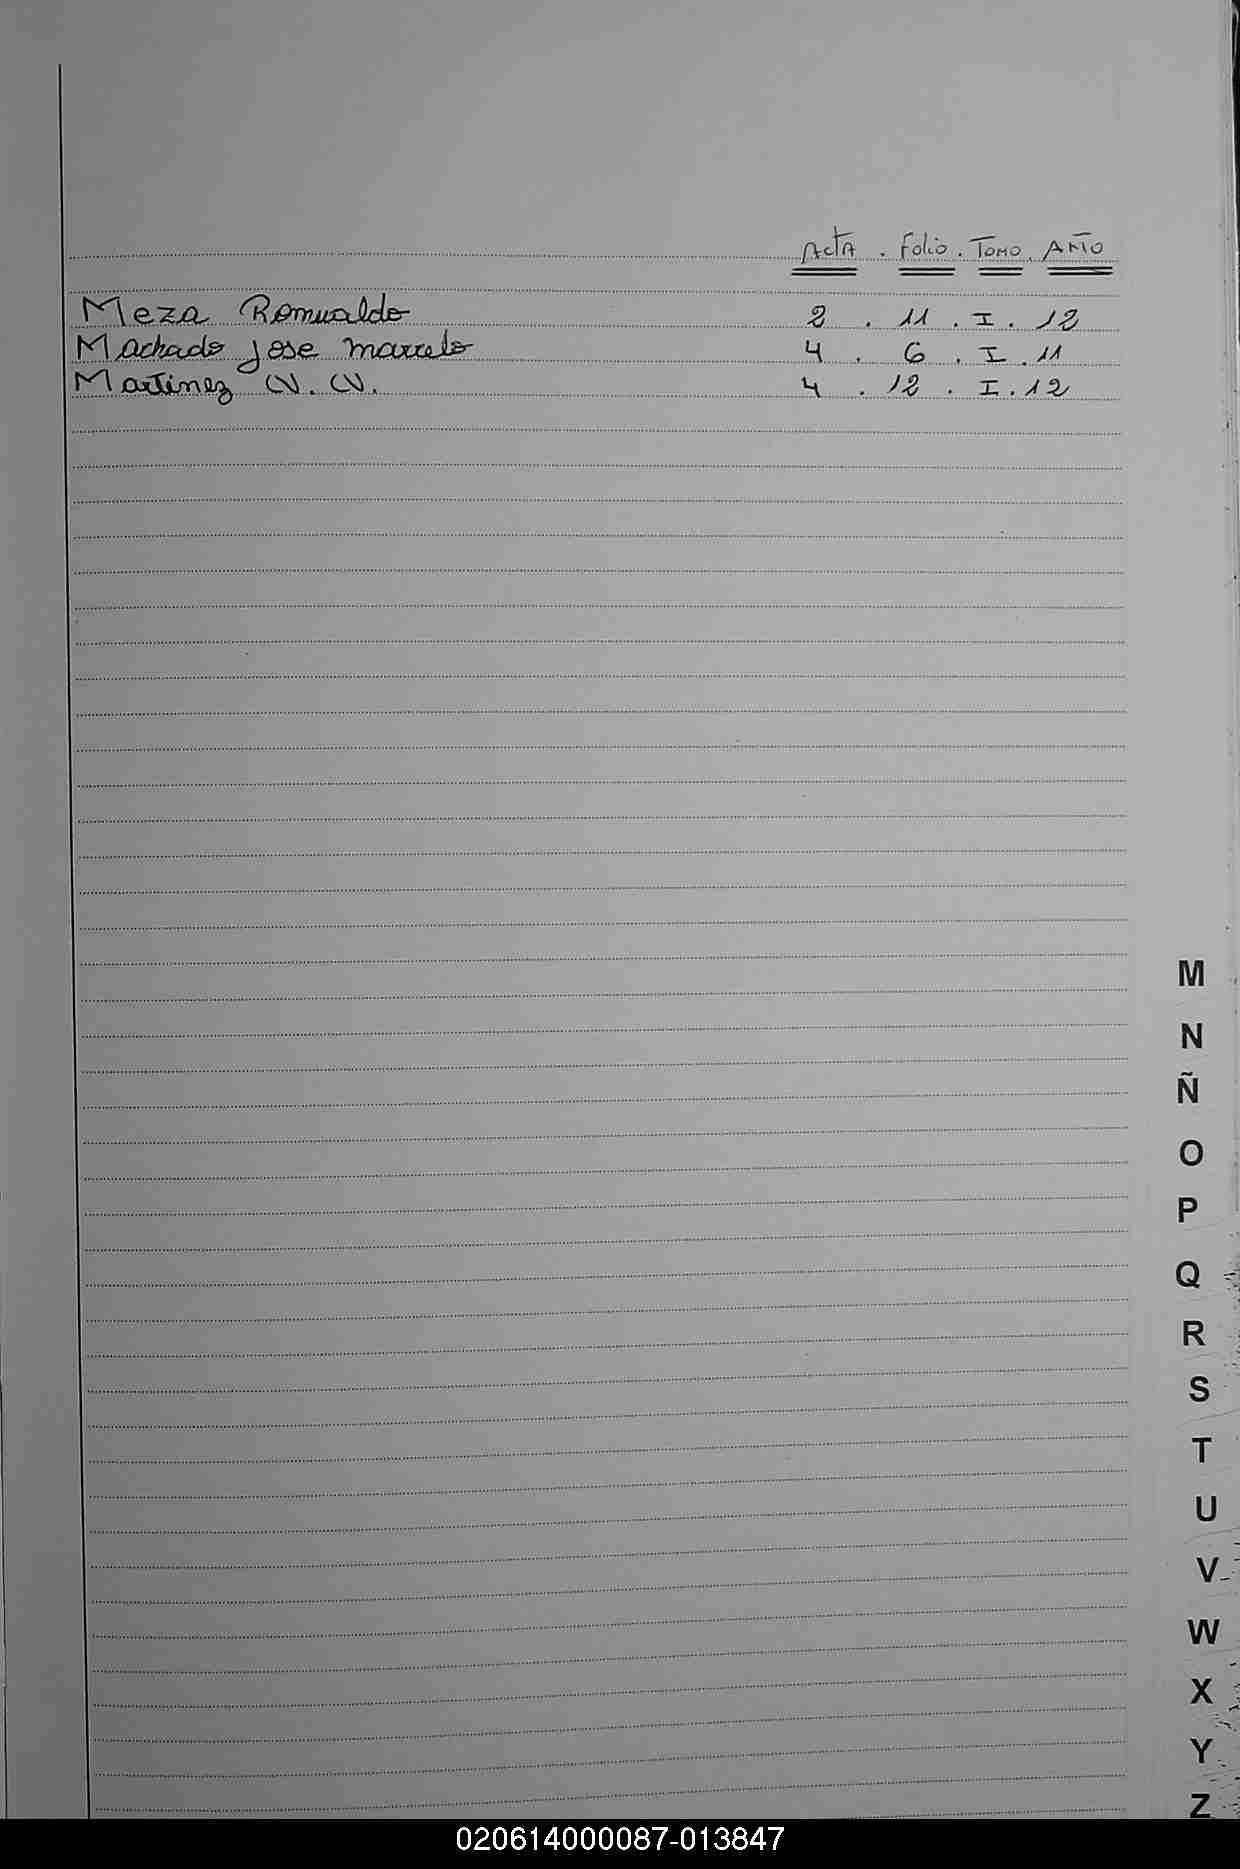 Acta . Folio . Tomo . Año
Meza Romualdo 2 . 11 . I . 12
Machado Jose Marcelo 4 . 6 . I . 11
Martinez N. N. 4 . 12 . I . 12
M
N
Ñ
O
P
Q
R
S
T
U
V
W
X
Y
Z
020614000087-013847